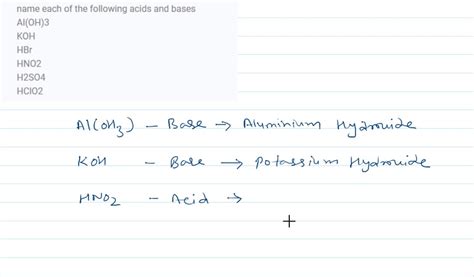 name each of the following acids and bases
Al(OH)3
KOH
HBr
HNO2
H2SO4
HClO2
Al(OH3) – Base → Aluminium Hydroxide
KOH – Base → Potassium Hydroxide
HNO2 – Acid →